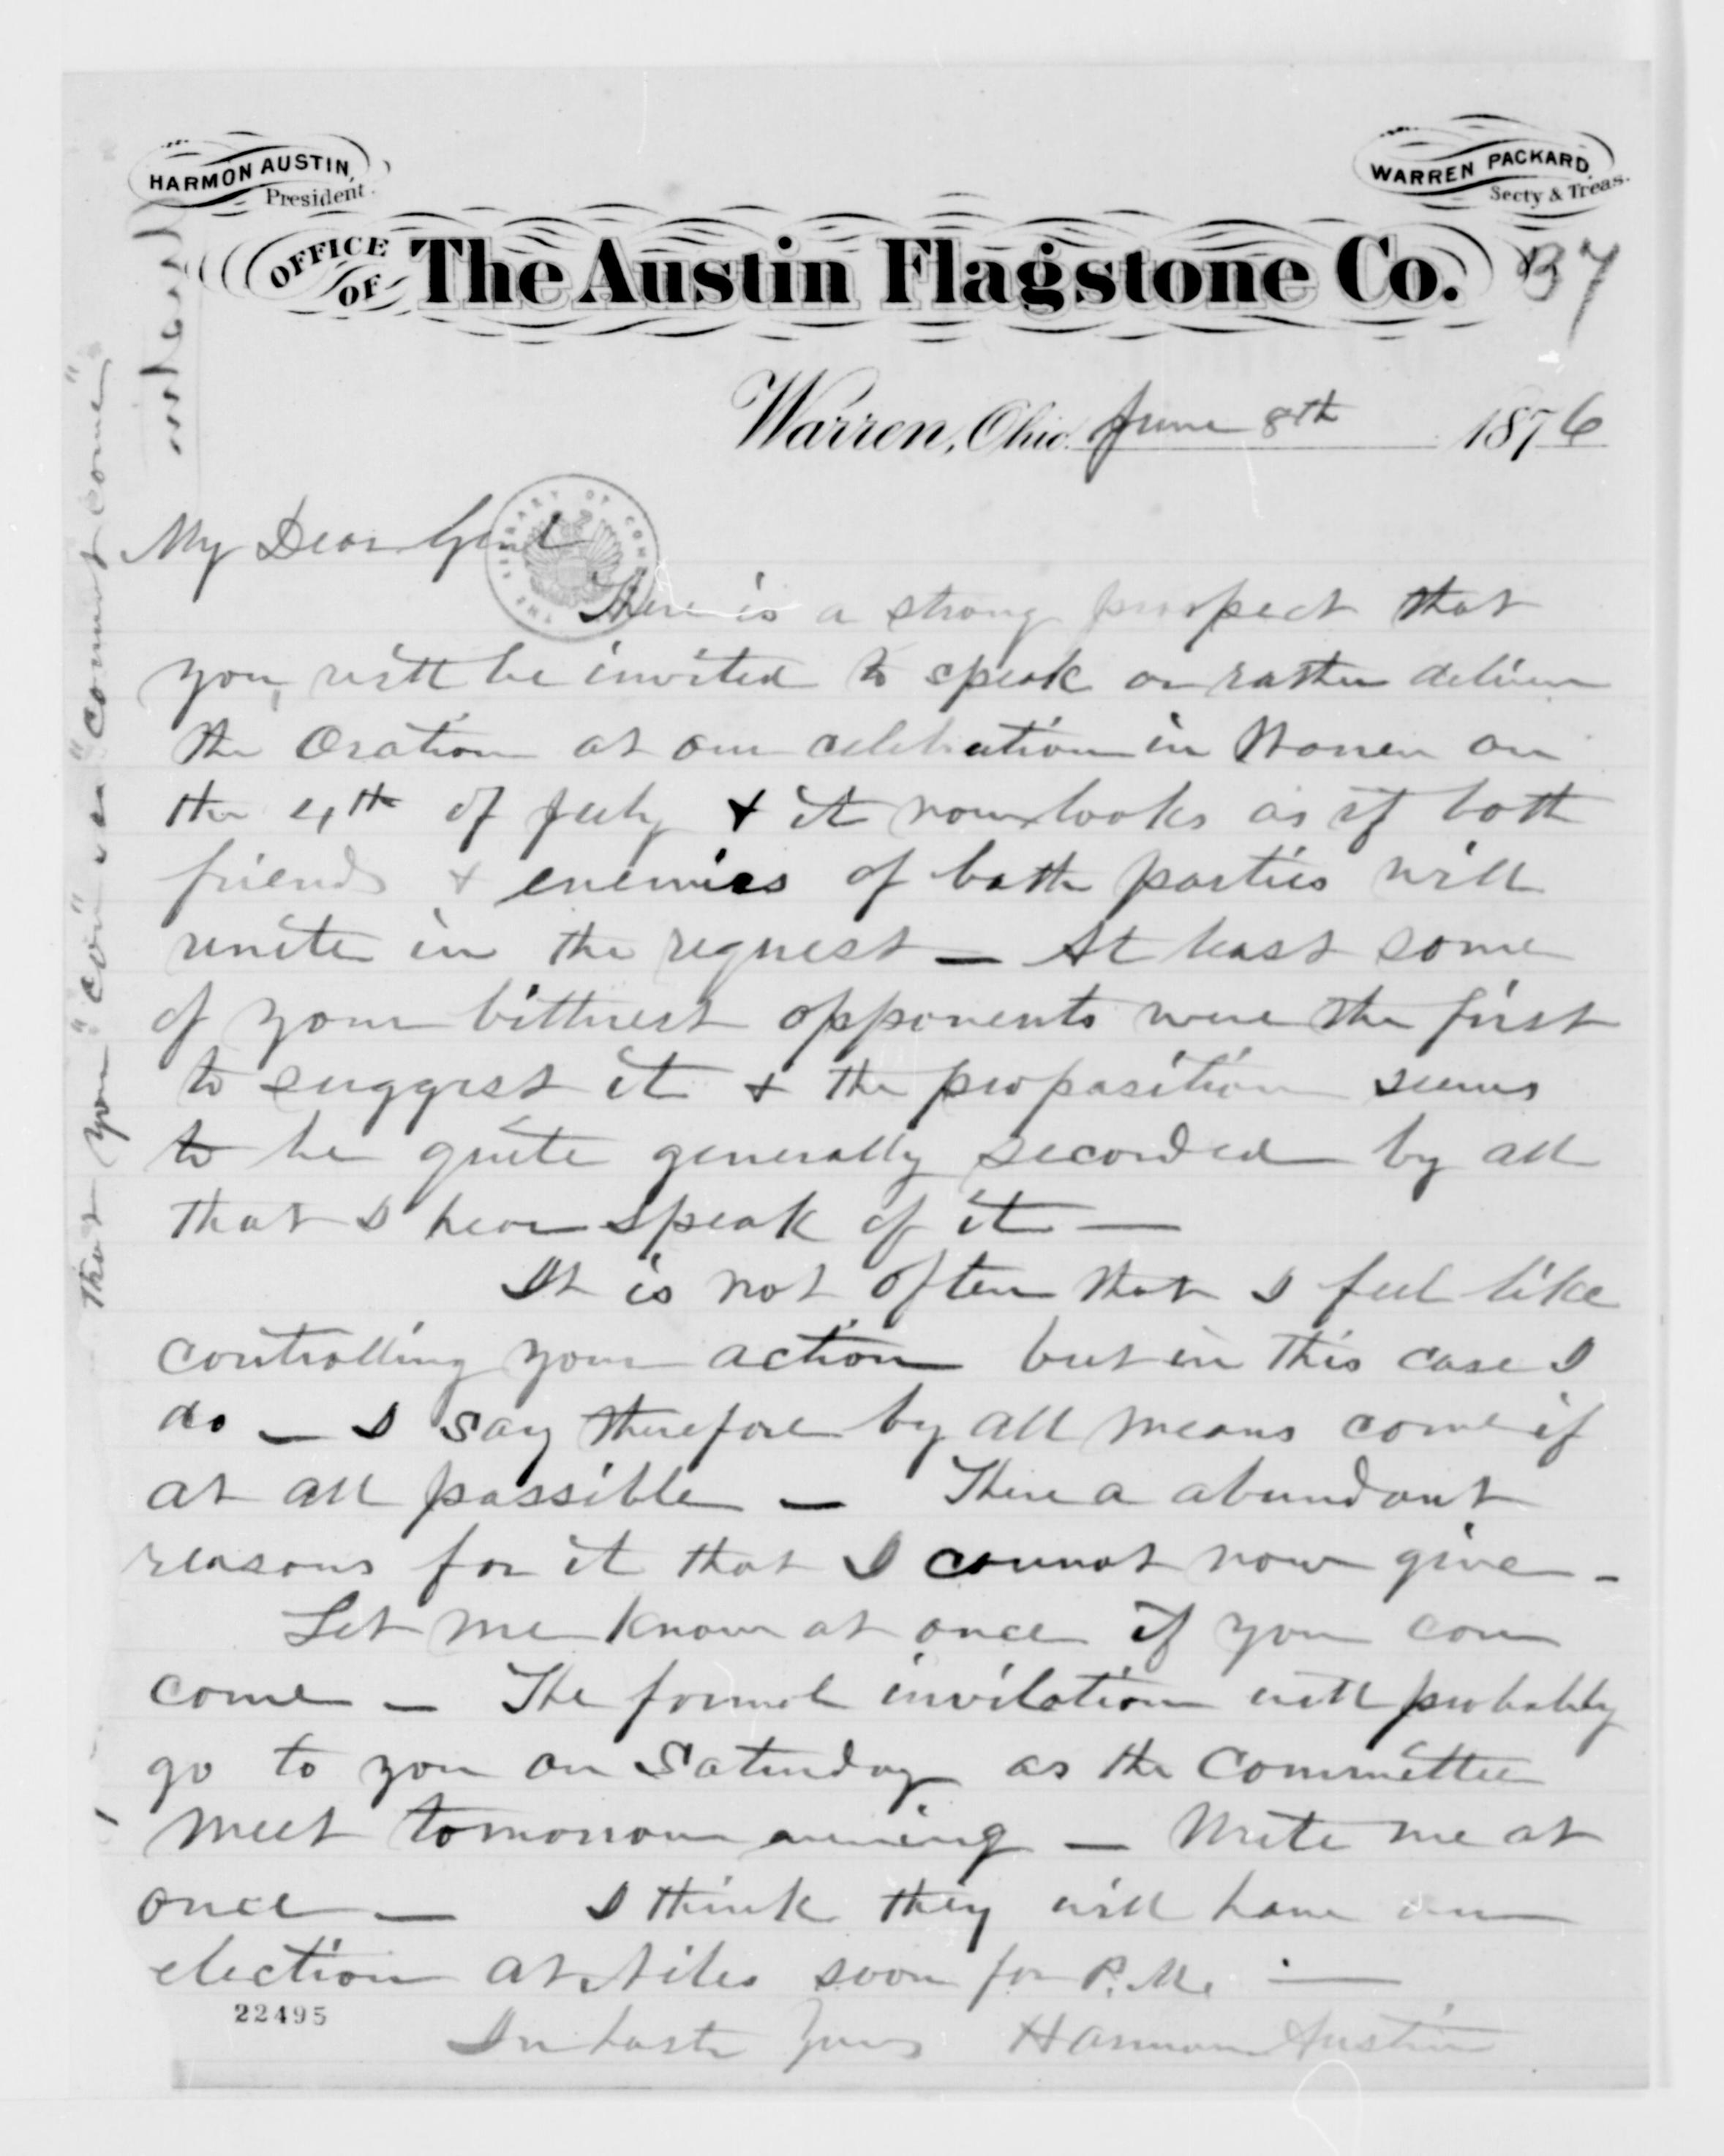 HARMON AUSTIN,
President.
WARREN PACKARD,
Secty & Treas.
OFFICE
OF
The Austin Flagstone Co.
B7
Warren, Ohio. June 8th 1876
My Dear Genl
THE LIBRARY OF CON
There is a strong prospect that
you, will be invited to speak or rather deliver
the Oration at our celebration in Warren on
the 4th of July & it now looks as if both
friends & enemies of both parties will
unite in the request — At least some
of your bitterest opponents were the first
to suggest it & the proposition seems
to be quite generally seconded by all
that I hear speak of it —
It is not often that I feel like
controlling your action but in this case I
do — I say therefore by all means come if
at all possible — There a abundant
reasons for it that I cannot now give —
Let me know at once if you can
come — The formal invitation will probably
go to you on Saturday as the Committee
meet tomorrow evening — Write me at
once — I think they will have an
election at Niles soon for P.M. —
In haste Yours Harmon Austin
22495
that you "can" or "cannot come"